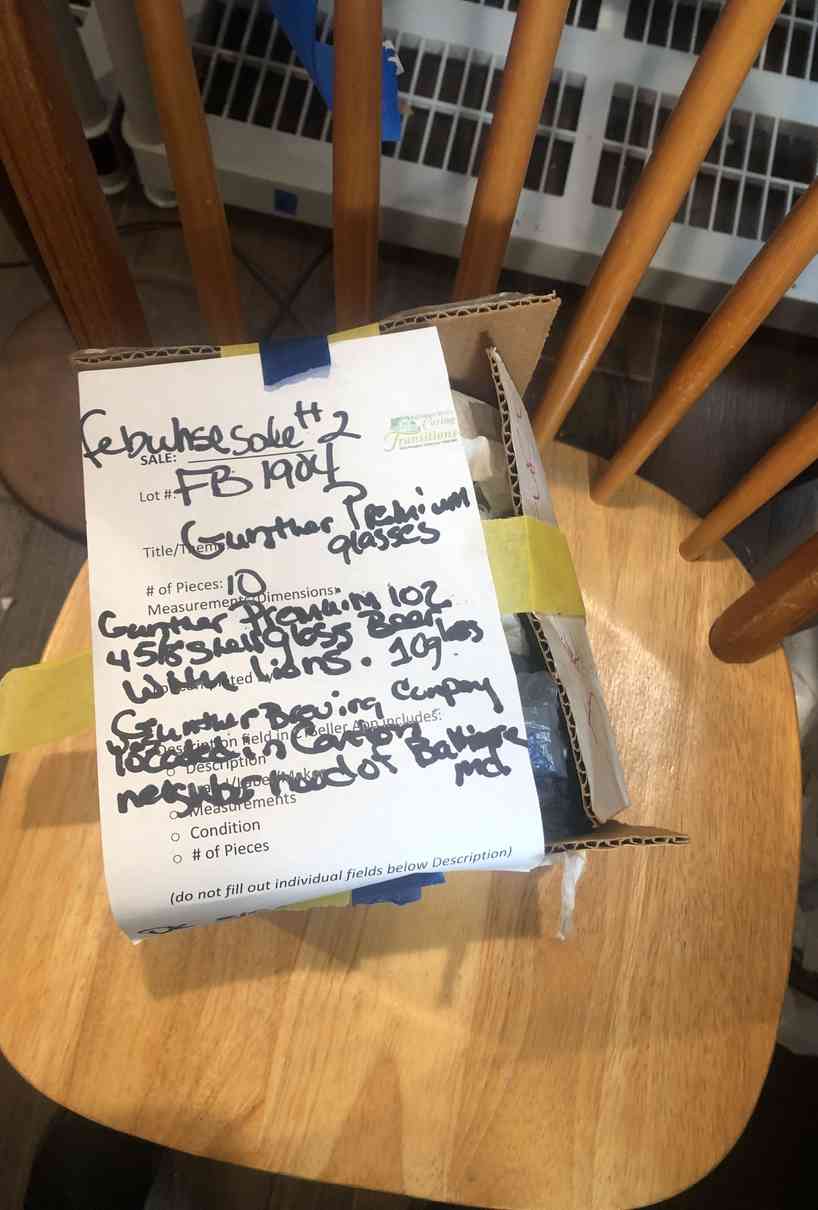 Febwhse sale #2
SALE:
Caring
Transitions
Lot #: FB 1904
Gunther Premium
glasses
Title/Theme
# of Pieces: 10
Measurements/Dimensions:
Gunther Premium 10z
4 5/8 Shell glass Beer
With Lions. 10glass
Gunther Brewing Company
Description field in Seller App includes:
was located in Canton
Description
neighborhood of Baltimore
Md.
Measurements
Condition
# of Pieces
(do not fill out individual fields below Description)